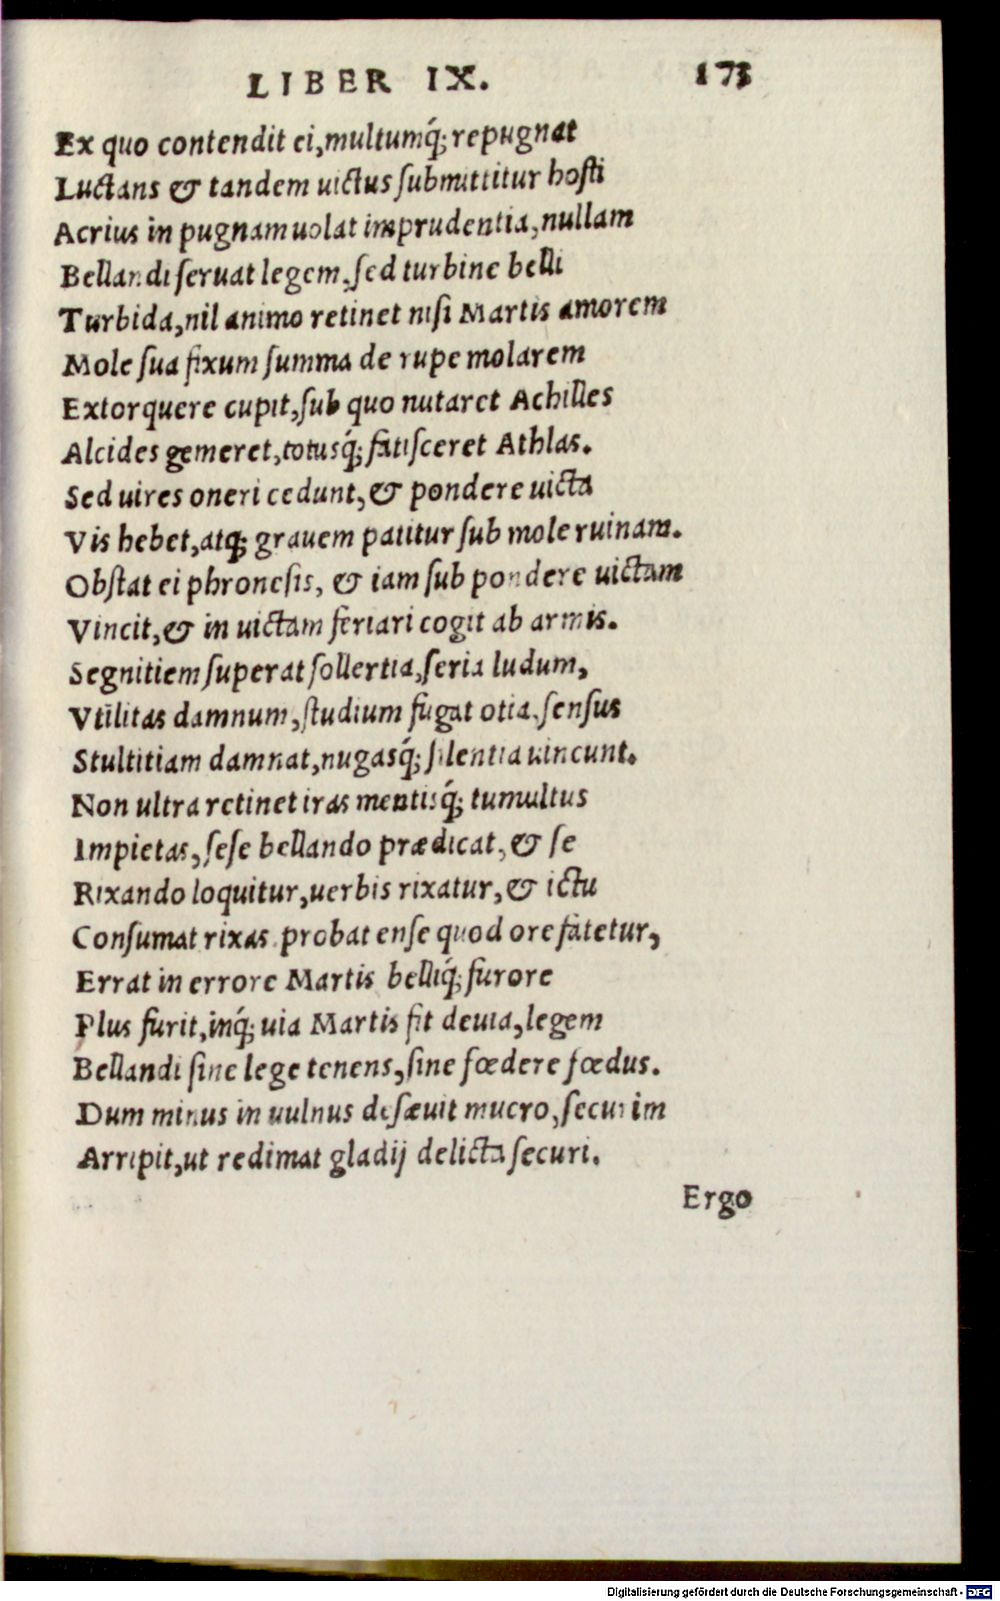 LIBER IX. 173
Ex quo contendit ei,multumq́; repugnat
Luctans & tandem uictus ſubmittitur hoſti
Acrius in pugnam uolat imprudentia,nullam
Bellandi ſeruat legem, ſed turbine belli
Turbida,nil animo retinet niſi Martis amorem
Mole ſua fixum ſumma de rupe molarem
Extorquere cupit,ſub quo nutaret Achilles
Alcides gemeret,totusq́; fatiſceret Athlas.
Sed uires oneri cedunt,& pondere uicta
Vis hebet,atq; grauem patitur ſub mole ruinam.
Obſtat ei phroneſis, & iam ſub pondere uictam
Vincit,& in uictam feriari cogit ab armis.
Segnitiem ſuperat ſollertia,ſeria ludum,
Vtilitas damnum,ſtudium fugat otia,ſenſus
Stultitiam damnat,nugasq́; ſilentia uincunt.
Non ultra retinet iras mentisq́; tumultus
Impietas,ſeſe bellando prædicat, & ſe
Rixando loquitur,uerbis rixatur,& ictu
Conſumat rixas probat enſe quod ore fatetur,
Errat in errore Martis belliq́; furore
Plus furit,inq́; uia Martis fit deuia,legem
Bellandi ſine lege tenens,ſine fœdere fœdus.
Dum minus in uulnus deſæuit mucro,ſecurim
Arripit,ut redimat gladij delicta ſecuri.
Ergo
Digitalisierung gefördert durch die Deutsche Forschungsgemeinschaft - DFG